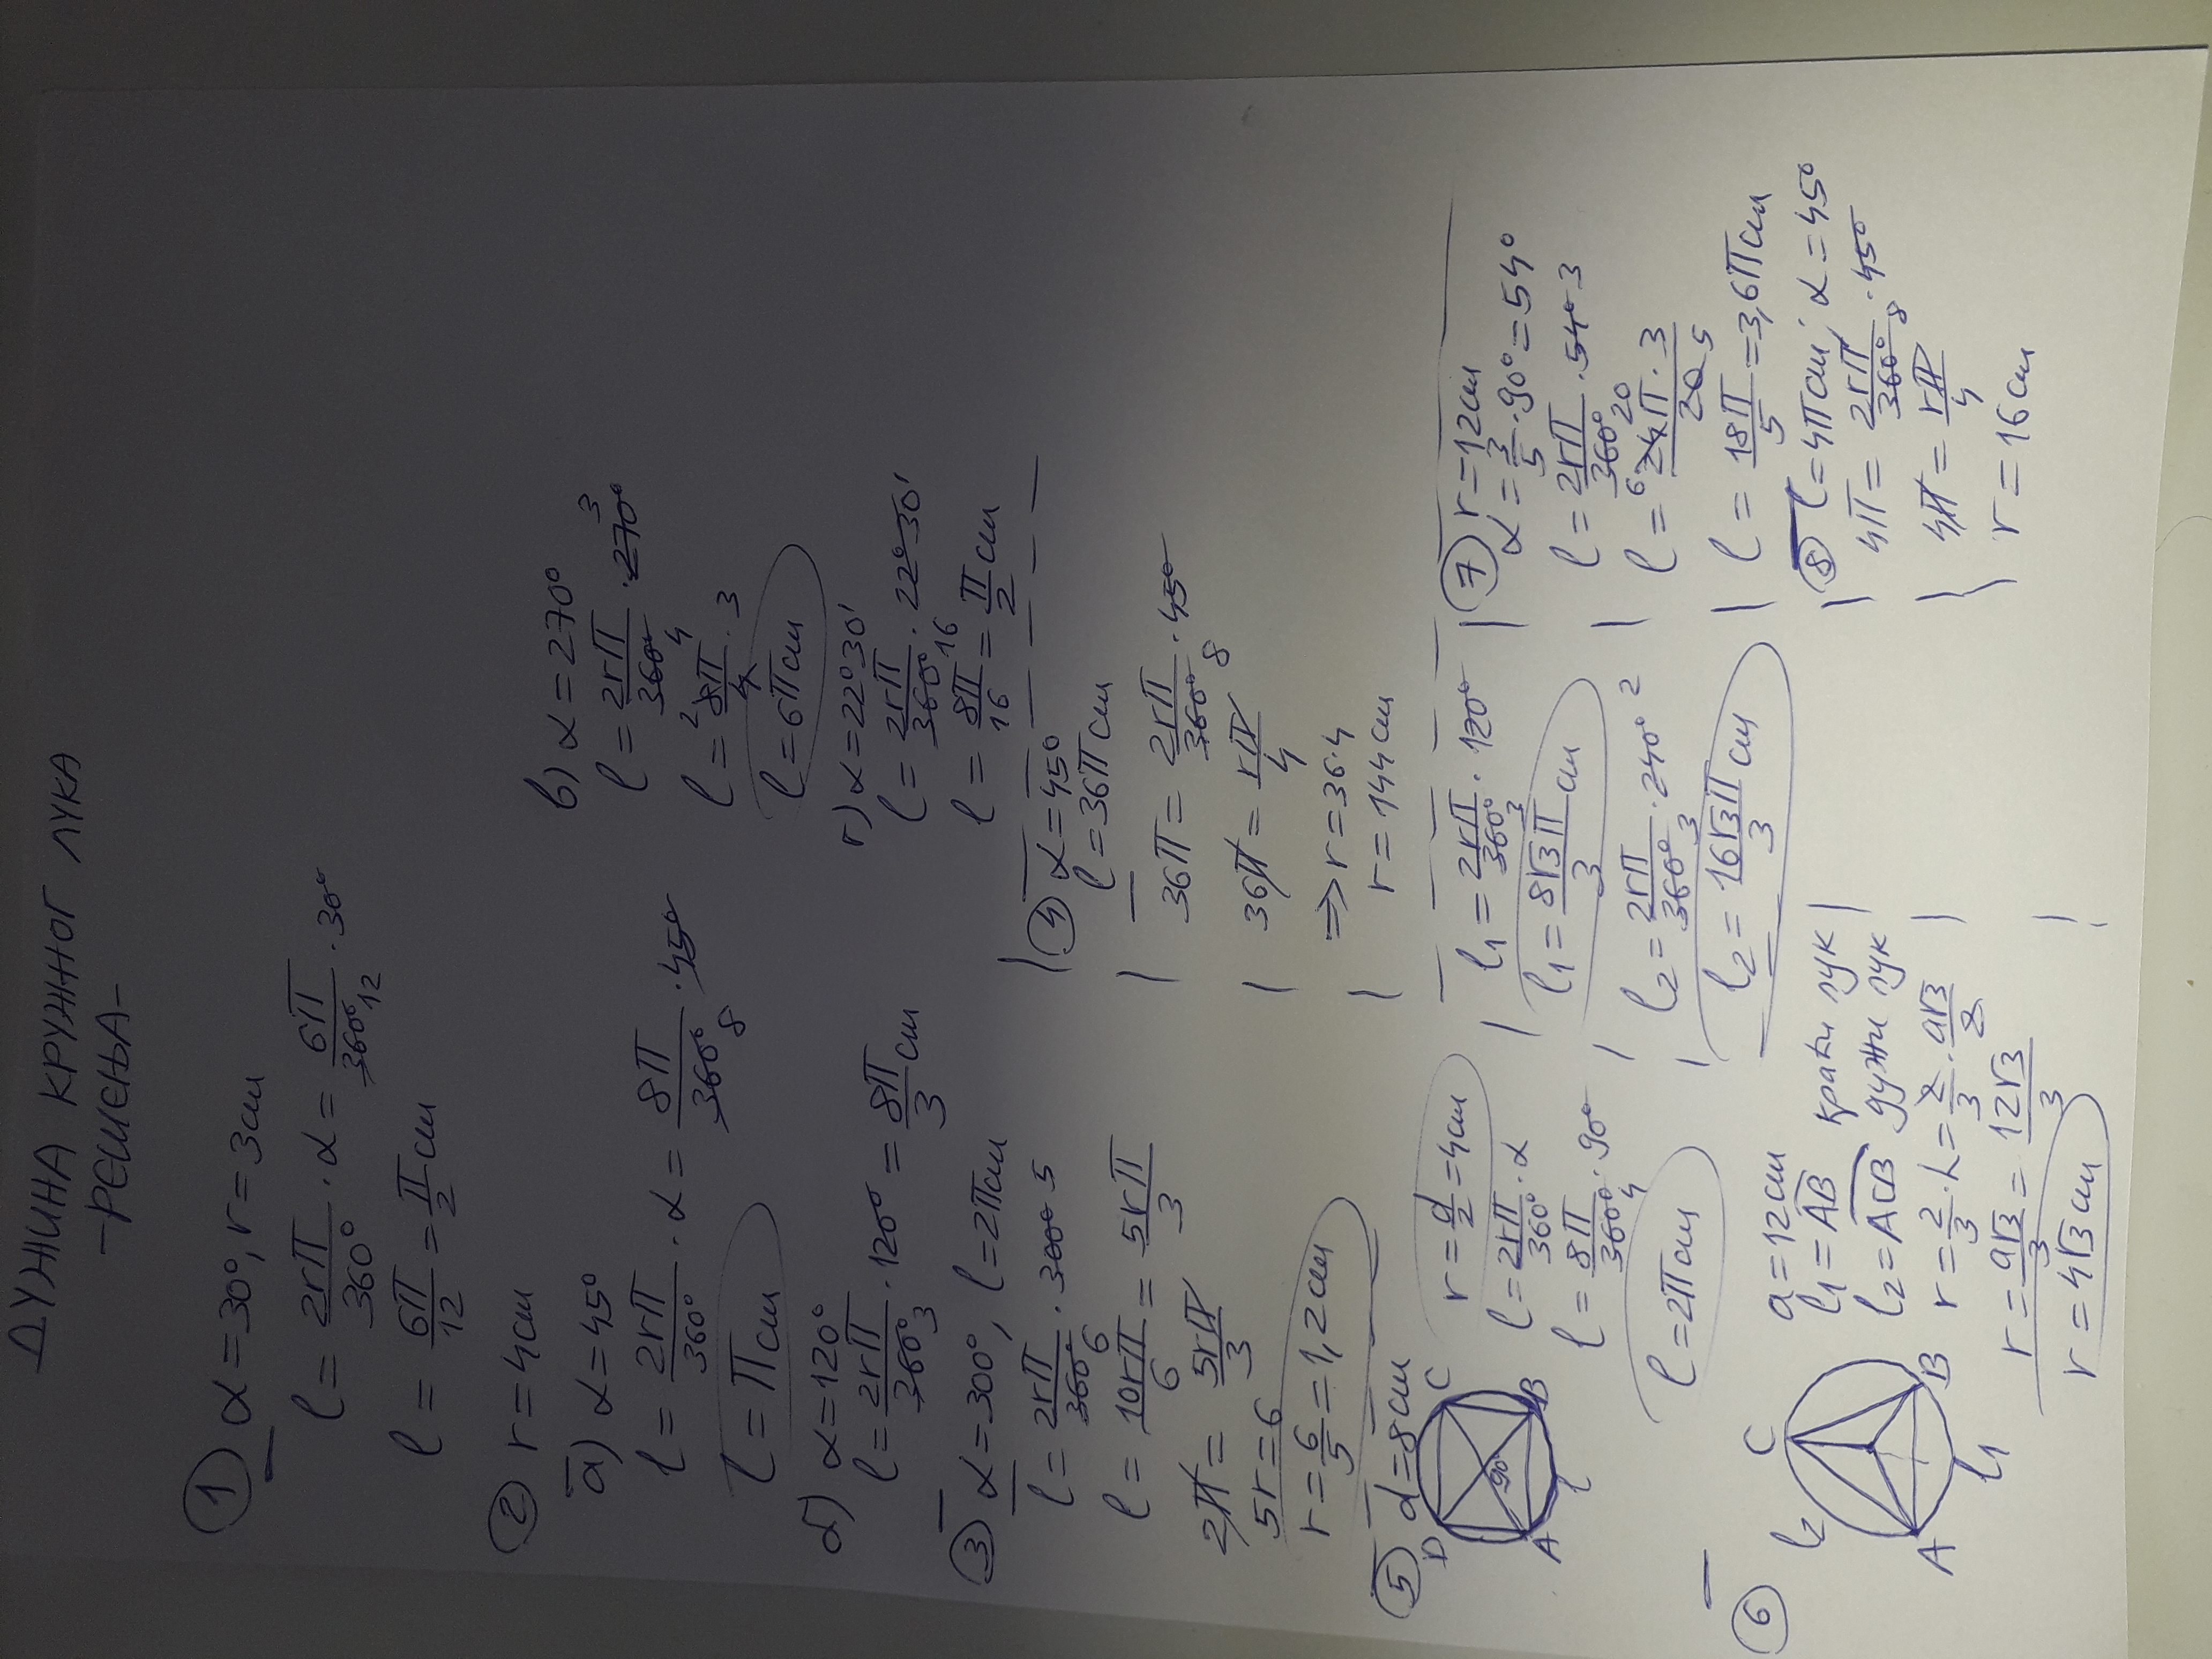 ДУЖИНА КРУЖНОГ ЛУКА
-РЕШЕЊА-
① α=30°, r=3cm
l = 2rπ/360° · α = 6π/360° 12 · 30°
l = 6π/12 = π/2 cm
② r=4cm
а) α=45°
l = 2rπ/360° · α = 8π/360° 8 · 45°
l = π cm
б) α=120°
l = 2rπ/360° 3 · 120° = 8π/3 cm
в) α=270°
l = 2rπ/360° 4 · 270° 3
l = 2 8π/4 · 3
l = 6π cm
г) α=22°30'
l = 2rπ/360° 16 · 22°30'
l = 8π/16 = π/2 cm
③ α=300°, l=2π cm
l = 2rπ/360° 6 · 300° 5
l = 10rπ/6 = 5rπ/3
2π = 5rπ/3
5r=6
r = 6/5 = 1,2 cm
④ α=45°
l=36π cm
36π = 2rπ/360° 8 · 45°
36π = rπ/4
=> r=36·4
r=144cm
⑤ d=8cm
D C
90°
A B
l
r = d/2 = 4cm
l = 2rπ/360° · α
l = 8π/360° 4 · 90°
l = 2π cm
⑥ a=12cm
l2 C
A B
l1
l1 = AB краћи лук
l2 = ACB дужи лук
r = 2/3 · h = 2/3 · a√3/2
r = a√3/3 = 12√3/3
r = 4√3 cm
l1 = 2rπ/360° 3 · 120°
l1 = 8√3π/3 cm
l2 = 2rπ/360° 3 · 240° 2
l2 = 16√3π/3 cm
⑦ r=12cm
α = 3/5 · 90° = 54°
l = 2rπ/360° 20 · 54° 3
l = 6 24π · 3/20 5
l = 18π/5 = 3,6π cm
⑧ l=4π cm; α=45°
4π = 2rπ/360° 8 · 45°
4π = rπ/4
r = 16 cm